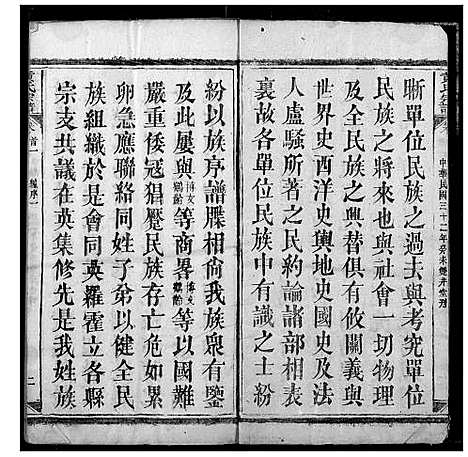 晰單位民族之過去與考究單位
民族之將來也與社會一切物理
及全民族之興替俱有攸關義與
世界史西洋史輿地史國史及詩
人盧騷所著民約論諸部相表
裏故各單位民族中有識之士紛
中華民國三十二年癸未
紛以族序譜牒相尙我族衆有鑒
及此屢與博文鶴齡等商畧以國難
嚴重倭寇猖獗民族存亡危如累
卵急應聯絡同姓子弟以健全民
族組織於是會同英羅霍立各縣
宗支共議在英集修先是我姓族
首一
二